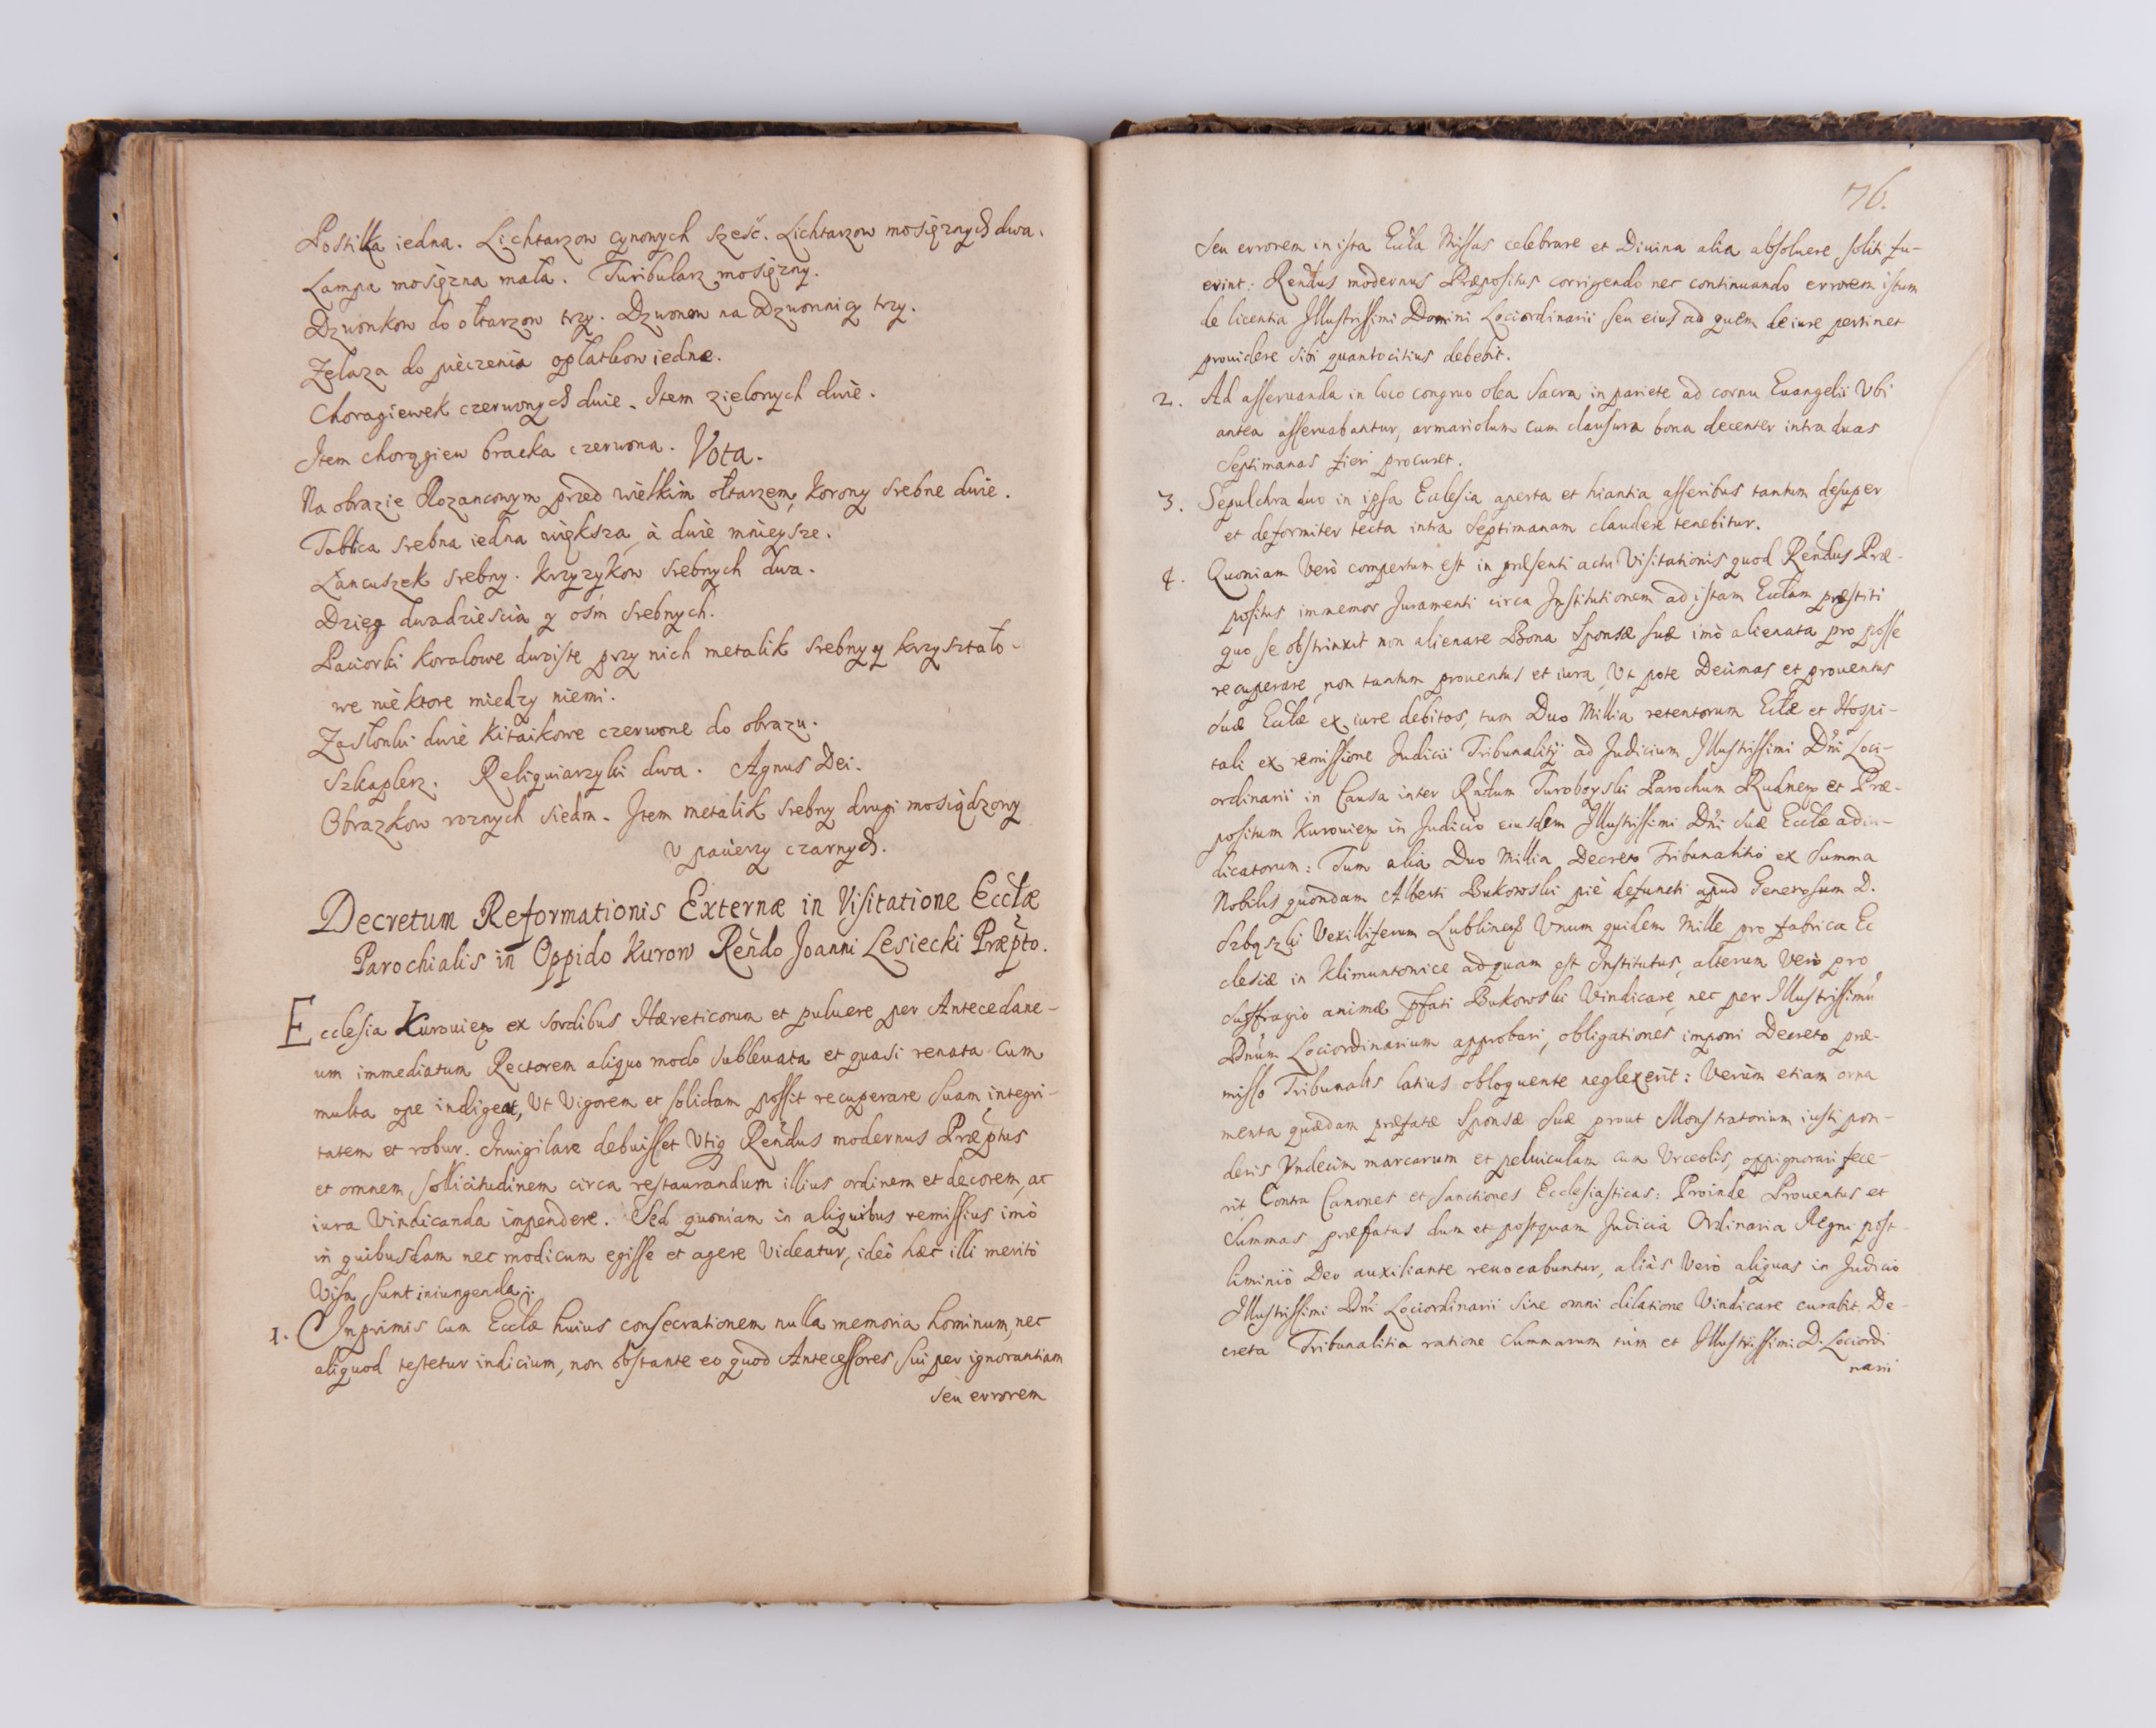 Postilla iedna. Lichtarzow cynowych sześć. Lichtarzow mosięznych dwa.
Lampa mosięzna mała. Turibularz mosięzny.
Dzwonkow do ołtarzow trzy. Dzwonow na Dzwonnicy trzy.
Zelaza do pieczenia opłatkow iedne.
Choragiewek czerwonych dwie. Item zielonych dwie.
Item chorągiew bracka czerwona. Vota.
Na obrazie Rozancowym przed wielkim ołtarzem, korony srebne dwie.
Tablica srebna iedna większa, à dwie mnieysze.
Łancuszek srebny. Krzyzykow srebnych dwa.
Dzięg dwadziescia y ośm srebnych.
Paciorki koralowe dwoiste przy nich metalik srebny y krzyształo-
we niektore miedzy niemi.
Zasłonki dwie kitaikowe czerwone do obrazu.
Szkaplerz. Reliquiarzyki dwa. Agnus Dei.
Obrazkow roznych siedm. Item metalik srebny drugi mosiądzowy
v pacierzy czarnych.
Decretum Reformationis Externæ in Visitatione Ecclæ
Parochialis in Oppido Kurow Rendo Joanni Lesiecki Præpto.
Ecclesia Kurouien ex sordibus Hæreticorum et puluere per Antecedane-
um immediatum Rectorem aliquo modo subleuata et quasi renata cum
multa ope indigeat, Vt Vigorem et solidam possit recuperare suam integri-
tatem et robur. Inuigilare debuisset Vtiq Rendus modernus Præptus
et omnem sollicitudinem circa restaurandum illius ordinem et decorem, ac
iura Vindicanda impendere. Sed quoniam in aliquibus remissius imò
in quibusdam nec modicum egisse et agere Videatur, ideò hæc illi meritò
Visa sunt iniungenda:
1. Inprimis cum Ecclæ huius consecrationem nulla memoria hominum, nec
aliquod testetur indicium, non obstante eo quod Antecessores sui per ignorantiam
seu errorem
76.
seu errorem in ista Eccla Missas celebrare et Diuina alia absoluere soliti fu-
erint: Rendus modernus Præpositus corrigendo nec continuando errorem istum
de licentia Illustrissimi Domini Lociordinarii seu eius ad quem de iure pertinet
prouidere sibi quantocitius debebit.
2. Ad asseruanda in loco congruo olea sacra in pariete ad cornu Euangelii Vbi
antea asseruabantur, armariolum cum clausura bona decenter intra duas
septimanas fieri procuret.
3. Sepulchra duo in ipsa Ecclesia aperta et hiantia asseribus tantum desuper
et deformiter tecta intra septimanam claudere tenebitur.
4. Quoniam Verò compertum est in præsenti actu Visitationis quod Rendus Præ-
positus immemor Juramenti circa Institutionem ad istam Ecclam præstiti
quo se obstrinxit non alienare Bona Sponsæ suæ imò alienata pro posse
recuperare, non tantum prouentus et iura, Vt pote Decimas et prouentus
suæ Ecclæ ex iure debitos, tum Duo Millia retentorum Eclæ et Hospi-
tali ex remissione Judicii Tribunalitij ad Judicium Illustrissimi Dni Loci-
ordinarii in Causa inter Rndum Turoboyski Parochum Rudnen et Præ-
positum Kurouien in Judicio eiusdem Illustrissimi Dni suæ Ecclæ adiu-
dicatorum: Tum alia Duo Millia Decreto Tribunalitio ex summa
Nobilis quondam Alberti Bukowski piè defuncti apud Generosum D.
Vexilliferum Lublinen Vnum quidem Mille pro fabrica Ec
clesiæ in Klimuntowice ad quam est Institutus, alterum Verò pro
suffragio animæ pfati Bukowski Vindicare, nec per Illustrissimu
Dnum Lociordinarium approbari, obligationes imponi Decreto præ-
misso Tribunalis latius obloquente neglexerit: Verùm etiam orna
menta quædam præfatæ Sponsæ suæ prout Monstratorium iusti pon-
deris Vndecim marcarum et peluiculam cum Vrceolis, oppignorari fece-
rit Contra Canones et sanctiones Ecclesiasticas: Proinde Prouentus et
summas præfatas dum et postquam Judicia Ordinaria Regni post-
liminiò Deo auxiliante reuocabuntur, aliàs Verò aliquas in Judicio
Illustrissimi Dni Lociordinarii sine omni dilatione Vindicare curabit. De-
creta Tribunalitia ratione summarum tùm et Illustrissimi D. Lociordi
narii